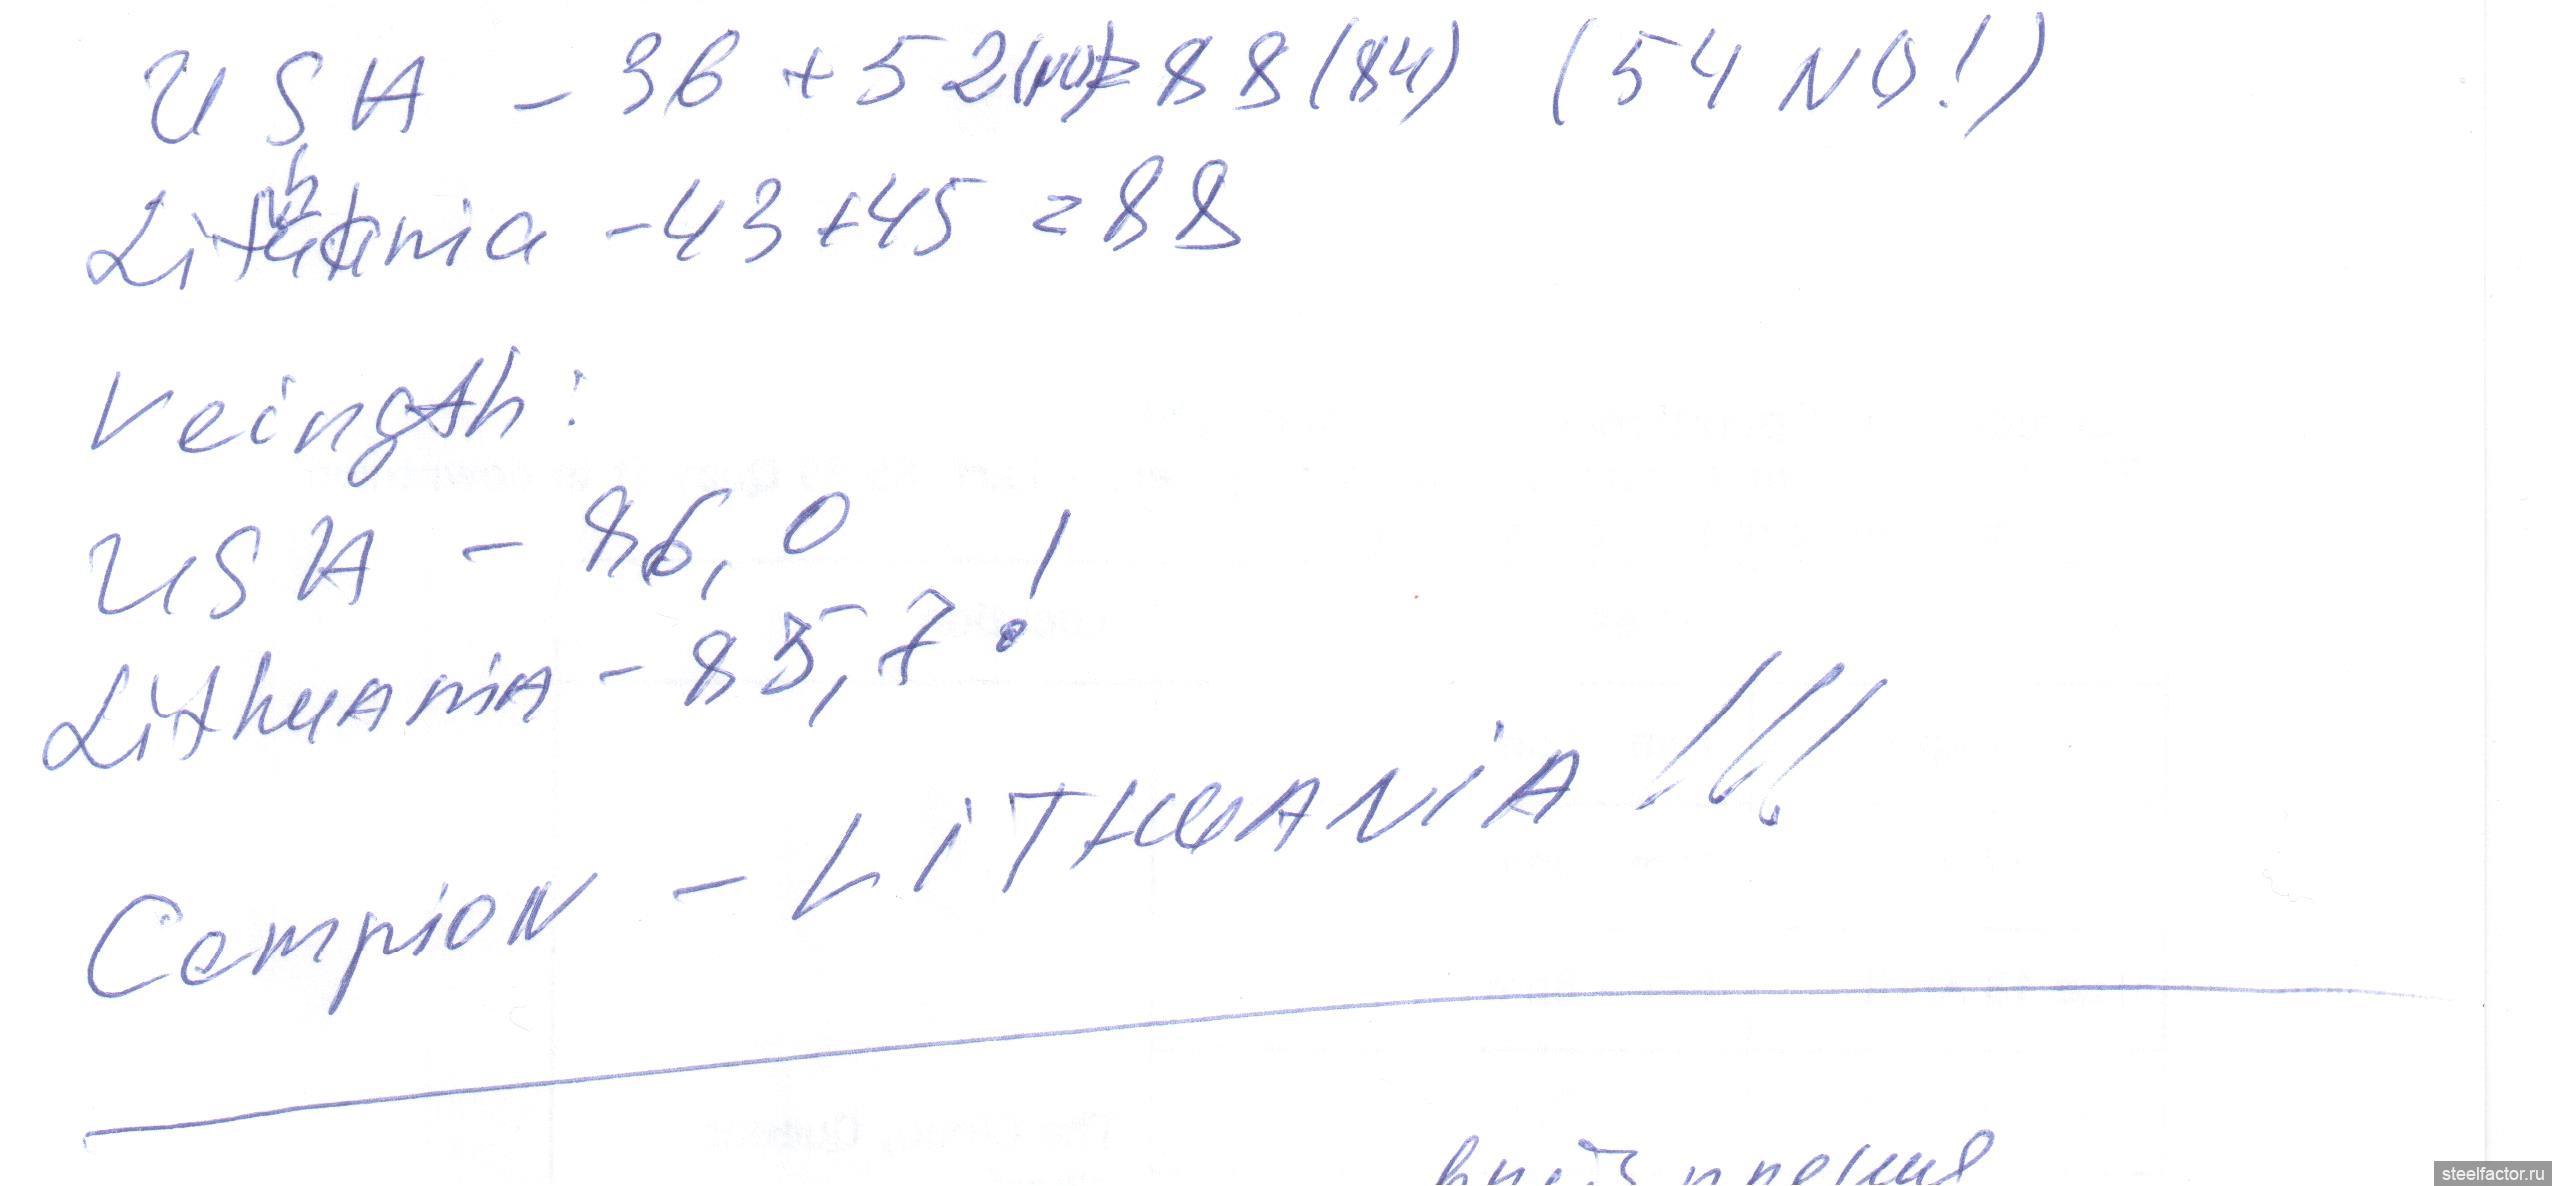 USA - 36 + 52(NO) = 88 (84) (54 NO!)
Lithuania - 43 + 45 = 88
Veingth:
USA - 86,0
LithuANiA - 85,7!
CompiON - LiTHUANiA!!!
steelfactor.ru